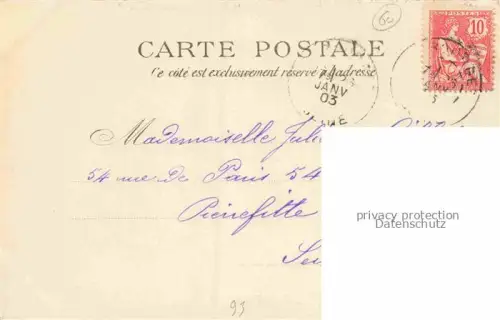 6c
10
CARTE POSTALE
Ce côté est exclusivement réservé à l'adresse
JANV
03
Mademoiselle Juli
54 rue De Paris 54
Pierrefitte
Sei
privacy protection
Datenschutz
93